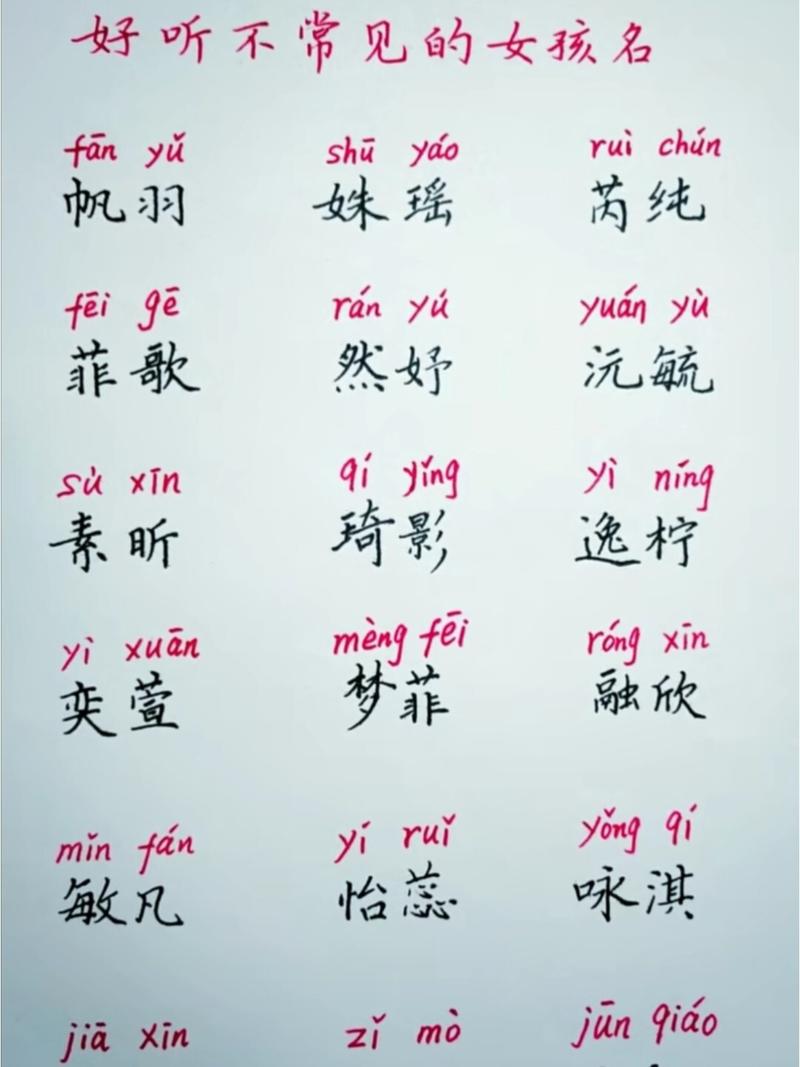 好听不常见的女孩名
fān yǔ shū yáo ruì chún
帆羽 姝瑶 芮纯
fēi gē rán yú yuán yù
菲歌 然妤 沅毓
sù xīn qí yǐng yì níng
素昕 琦影 逸柠
yì xuān mèng fēi róng xīn
奕萱 梦菲 融欣
mǐn fán yí ruǐ yǒng qí
敏凡 怡蕊 咏淇
jiā xīn zǐ mò jūn qiáo